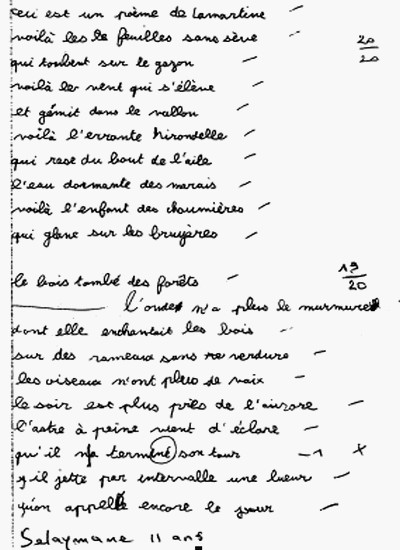 ceci est un poème de Lamartine
voilà les feuilles sans sève
20/20
qui tombent sur le gazon
voilà le vent qui s'élève
et gémit dans le vallon
voilà l'errante hirondelle
qui rase du bout de l'aile
l'eau dormante des marais
voilà l'enfant des chaumières
qui glane sur les bruyères
le bois tombé des forêts
19/20
l'onde n'a plus le murmure
dont elle enchantait les bois
sur des rameaux sans verdure
les oiseaux n'ont plus de voix
le soir est plus près de l'aurore
l'astre à peine vient d'éclore
qu'il va terminé son tour -1 x
il jette par intervalle une lueur
qu'on appelle encore le jour
Selaymane 11 ans